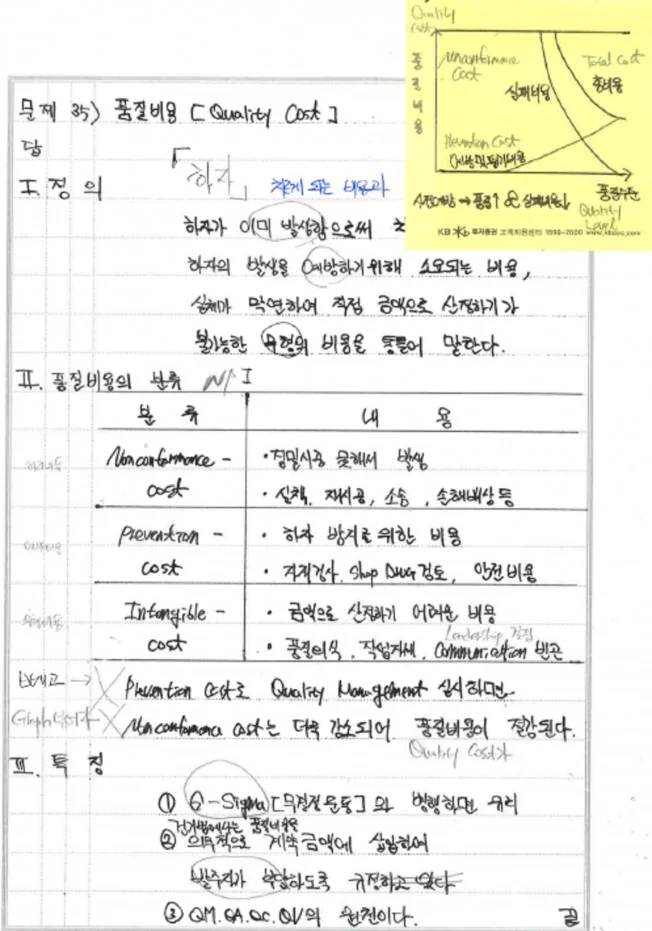 Quality
Cost
품질비용
Nonconformance
Cost
실패비용
Total Cost
총비용
Prevention Cost
예방및평가비용
사전예방 → 품질↑ & 실패비용↓
품질수준
Quality
Level
KB 투자증권 고객지원센터 1599-7000
문제 35) 품질비용 [Quality Cost]
답
I. 정의
「하자」
하자가 이미 발생함으로써 치르게 되는 비용과
하자의 발생을 예방하기 위해 소요되는 비용,
실체가 막연하여 직접 금액으로 산정하기가
불가능한 무형의 비용을 통틀어 말한다.
II. 품질비용의 분류
분류 내용
Nonconformance - cost
· 정밀시공 못해서 발생
· 실책, 재시공, 소송, 손해배상 등
Prevention - cost
· 하자 방지를 위한 비용
· 자재검사, Shop Dwg 검토, 안전비용
Intangible - cost
· 금액으로 산정하기 어려운 비용
Leadership 결핍
· 품질의식, 작업자세, Communication 빈곤
Prevention Cost로 Quality Management 실시하면
Nonconformance cost는 더욱 감소되어 품질비용이 절감된다.
Quality Cost가
III. 특징
① 6-Sigma [무결점운동]와 병행하면 유리
건기법에서는 품질비용을
② 의무적으로 계약금액에 삽입하여
발주자가 부담하도록 규정하고 있다
③ QM.QA.QC.QV의 원전이다. 끝